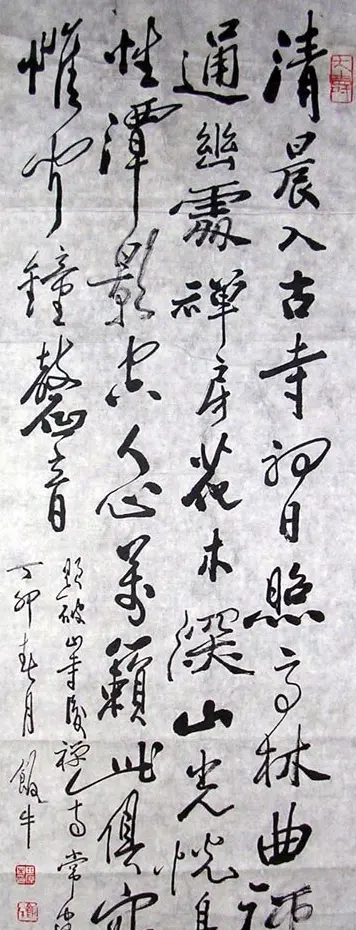 清晨入古寺初日照高林曲徑
通幽處禪房花木深山光悦鳥
性潭影空人心萬籟此俱寂
惟聞鐘磬音
題破山寺後禪院 常建
丁卯春月 飯牛